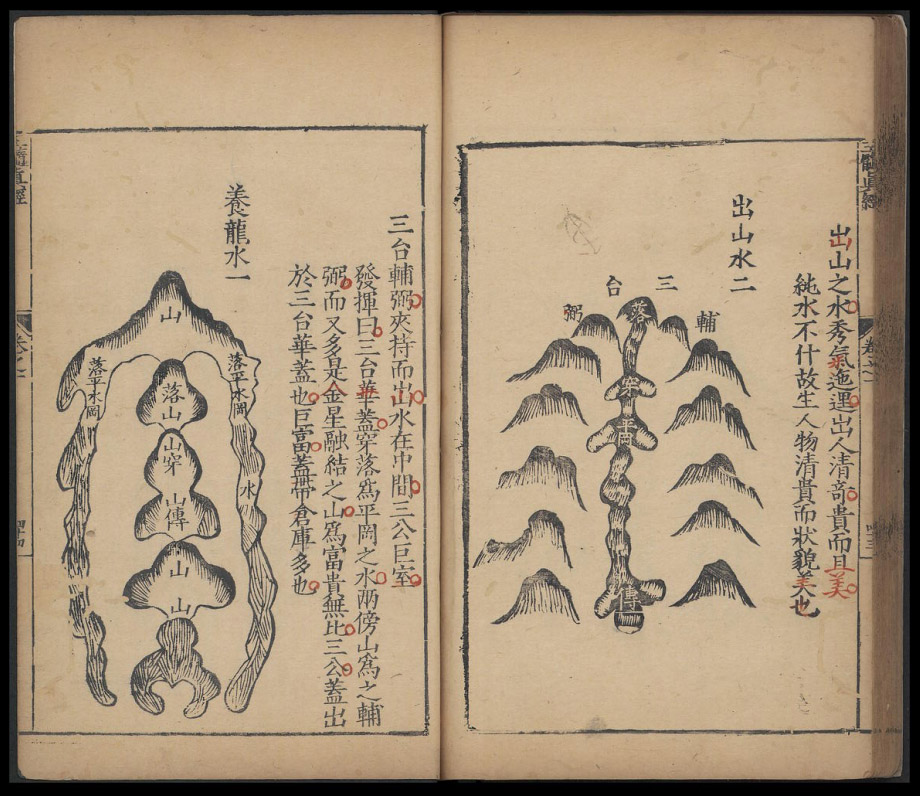 出山之水秀氣迤邐出人清奇貴而且美
純水不什故生人物清貴而狀貌美也
出山水二
三台
輔
弼
落
穿
平岡
傳
三台輔弼夾持而出水在中間三公巨室
發揮曰三台華蓋穿落爲平岡之水兩傍山爲之輔
弼而又多是金星融結之山爲富貴無比三公蓋出
於三台華蓋也巨富蓋帶倉庫多也
養龍水一
山
落平水岡
水
落山
山穿
山傳
山
山
落平水岡